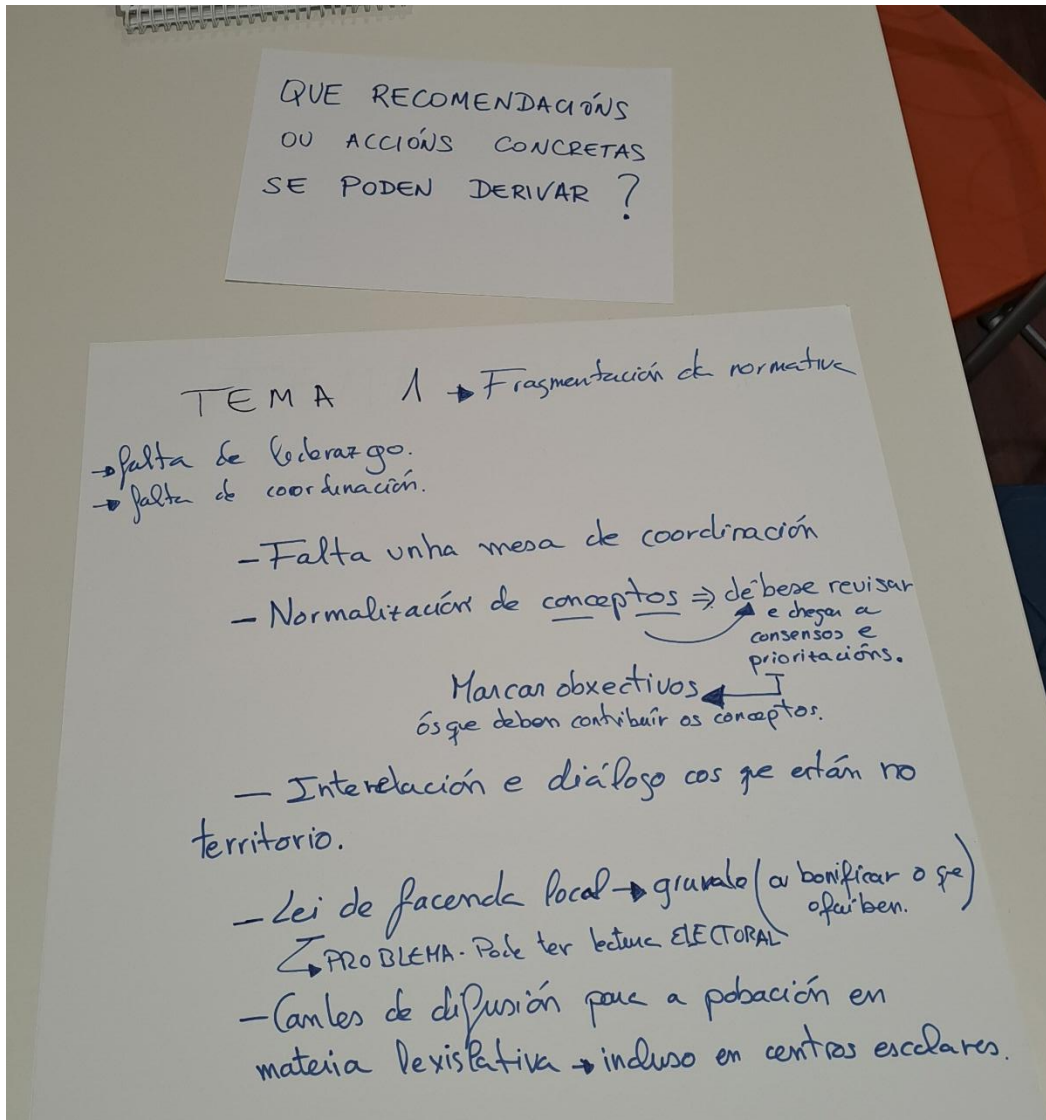 QUE RECOMENDACIÓNS
OU ACCIÓNS CONCRETAS
SE PODEN DERIVAR ?
TEMA 1 → Fragmentación de normativa
→ falta de liderazgo.
→ falta de coordinación.
- Falta unha mesa de coordinación
- Normalización de conceptos ⇒ débese revisar
e chegar a
consensos e
prioritacións.
Marcar obxectivos
ós que deben contribuír os conceptos.
- Interelación e diálogo cos que están no
territorio.
- Lei de facenda local → gravalo (ou bonificar o que
o fai ben.)
↳ PROBLEMA. Pode ter lectura ELECTORAL
- Canles de difusión para a pobación en
materia lexislativa → incluso en centros escolares.